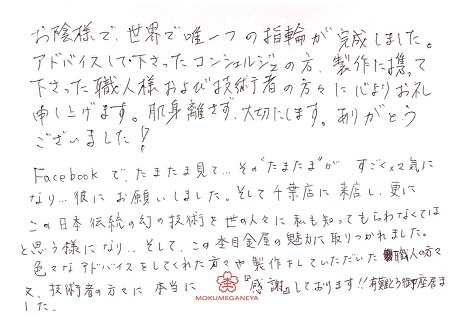 お陰様で、世界で唯一つの指輪が完成しました。
アドバイスして下さったコンシェルジュの方、製作に携って
下さった職人様および技術者の方々に心よりお礼
申し上げます。肌身離さず、大切にします。ありがとう
ございました!
Facebookで、たまたま見て…その"たまたま"が すごく×2気に
なり…彼にお願いしました。そして千葉店に来店し、更に
この日本伝統の幻の技術を世の人々に私も知ってもらわなくては
と思う様になり…そして、この杢目金屋の魅力に取りつかれました。
色々なアドバイスをしてくれた方々や製作をしていただいた職人の方々
又、技術者の方々に本当に『感謝』しております!!有難とう御座居ま
した。
MOKUMEGANEYA